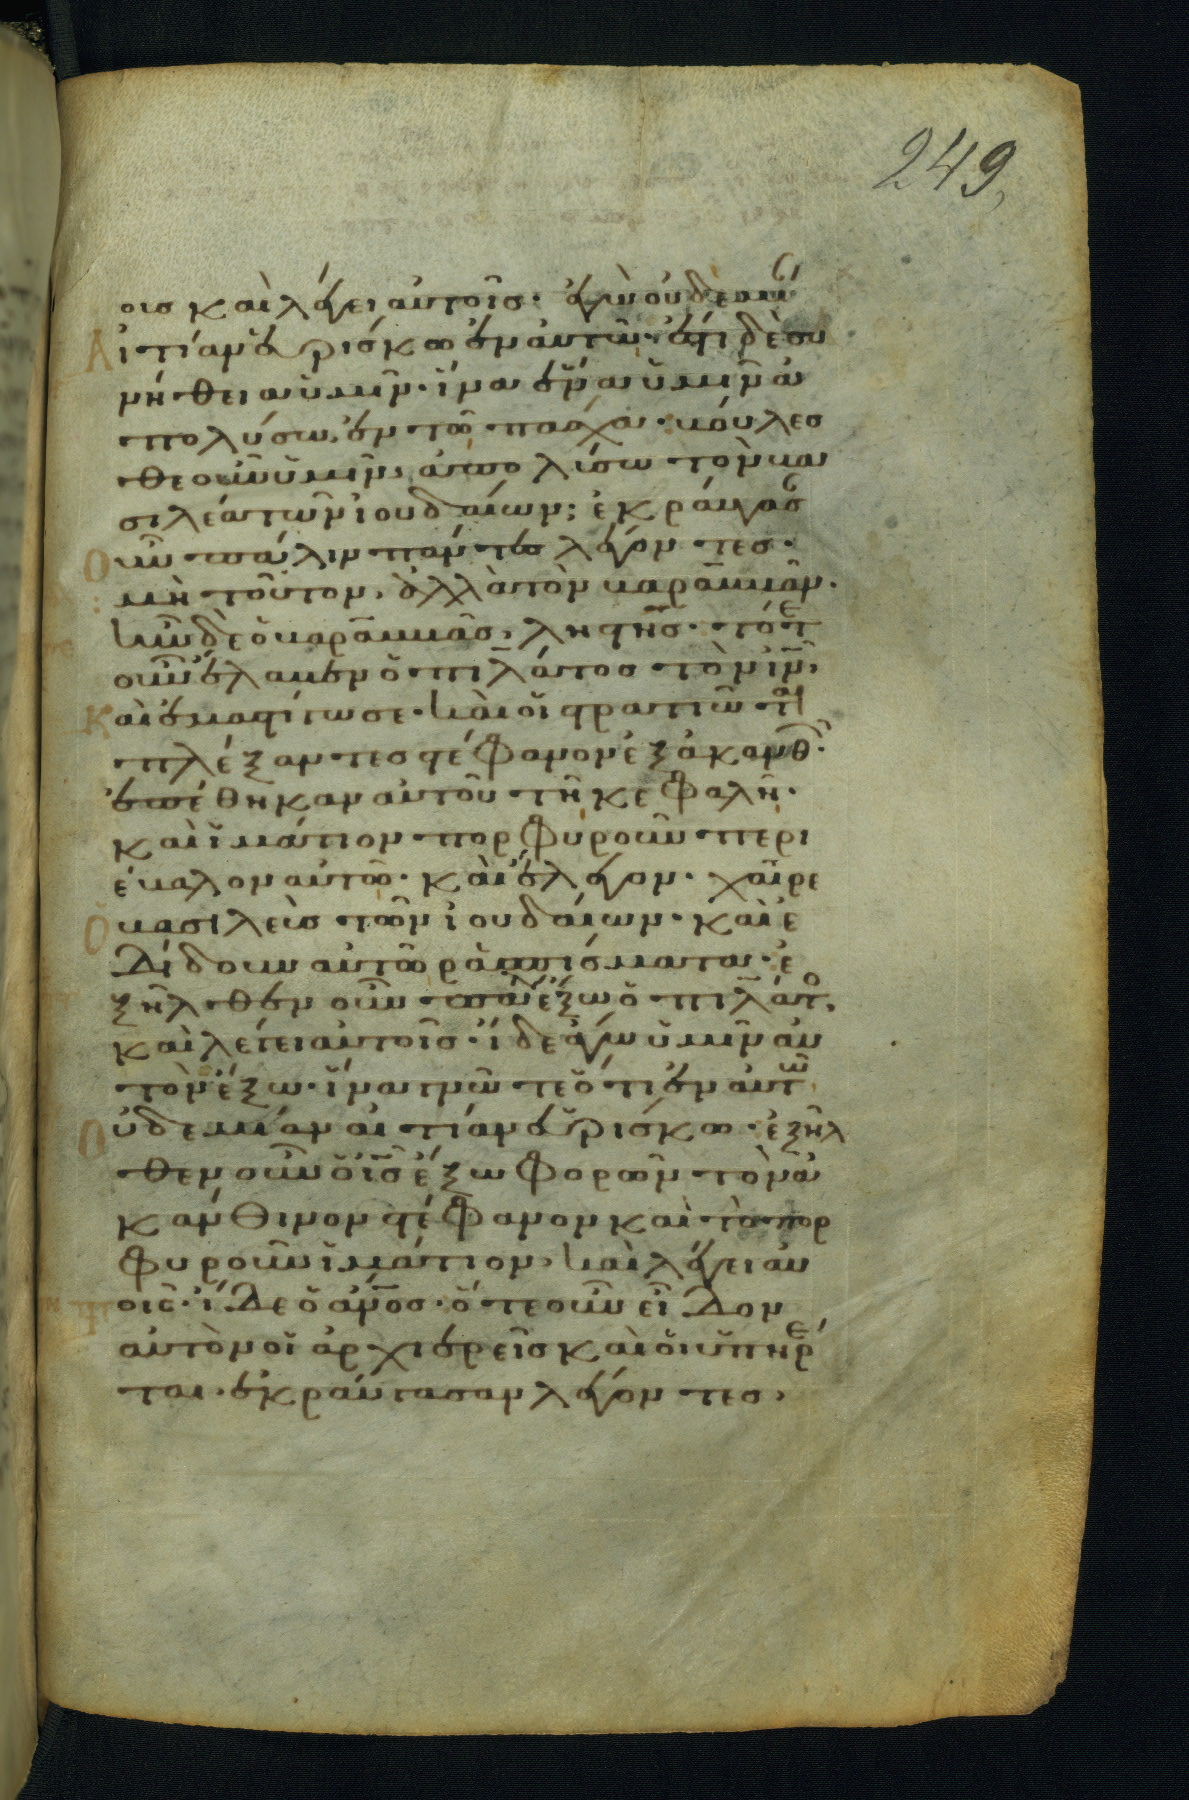 249,
οισ καὶ λέγει αὐτοῖσ· ἐγὼ οὐδεμί
Αἰτίαν εὑρίσκω ἐν αὐτῶ· ἔστι δὲ συ
νήθεια ὑμῖν· ἵνα ἕνα ὑμῖν ἀ
πολύσω ἐν τῶ πάσχα· βούλεσ
θε οὖν ὑμῖν ἀπολύσω τὸν βα
σιλέα τῶν ἰουδαίων; ἐκραύγασ
Οὖν πάλιν πάντεσ λέγοντεσ·
μὴ τοῦτον, ἀλλὰ τὸν βαραββᾶν·
ἦν δὲ ὁ βαραββᾶσ, ληστῆσ· τότε
οὖν ἔλαβεν ὁ πιλάτοσ τὸν ἰν,
Καὶ ἐμαστίγωσε· καὶ οἱ στρατιῶται
πλέξαντεσ στέφανον ἐξ ἀκανθῶ·
ἐπέθηκαν αὐτοῦ τῆ κεφαλῆ·
καὶ ἱμάτιον πορφυροῦν περι
έβαλον αὐτῶ· καὶ ἔλεγον· χαῖρε
Ὁ βασιλεὺσ τῶν ἰουδαίων· καὶ ἐ
δίδουν αὐτῶ ραπίσματα· ἐ
ξῆλθεν οὖν πάλιν ἔξω ὁ πιλάτο,
καὶ λέγει αὐτοῖσ· ἴδε ἄγω ὑμῖν αὐ
τὸν ἔξω· ἵνα γνῶτε ὅτι ἐν αὐτῶ
Οὐδεμίαν αἰτίαν εὑρίσκω· ἐξῆλ
θεν οὖν ὁ ισ ἔξω φορῶν τὸν ἀ
κάνθινον στέφανον καὶ το πορ
φυροῦν ἱμάτιον, καὶ λέγει αυ
οισ· ἴδε ὁ ανοσ· ὅτε οὖν εἶδον
αὐτὸν οἱ ἀρχιερεῖσ καὶ οἱ ὑπηρέ
ται· ἐκραύγασαν λέγοντεσ,